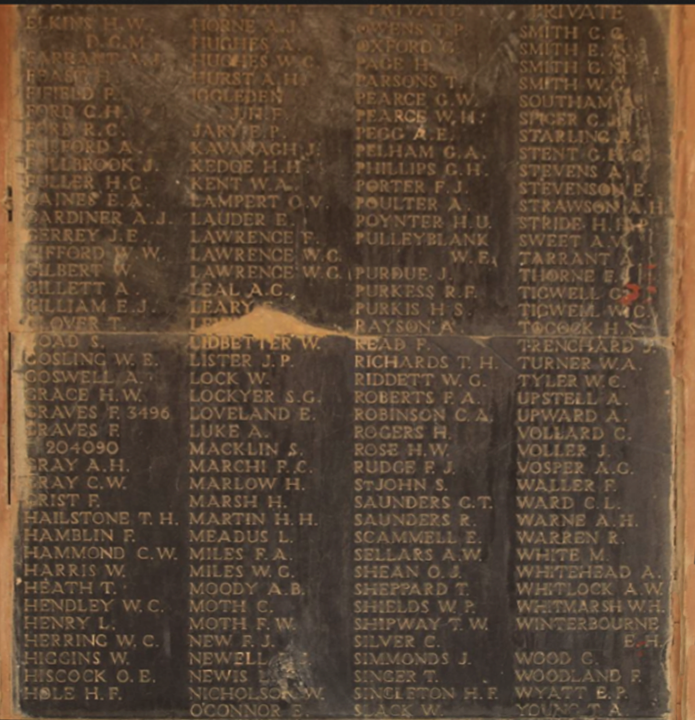 ELKINS H.W.
D.C.M.
FIFIELD F.
FORD C.H.
FORD R.C.
FULLBROOK J.
FULLER H.C.
GAINES E.A.
GARDINER A.J.
GERREY J.E.
GIFFORD W.W.
GILBERT W.
GILLETT A.
GILLIAM E.J.
GLOVER T.
GOAD S.
GOSLING W.E.
GOSWELL A.
GRACE H.W.
GRAVES F. 3496
GRAVES F.
204090
GRAY A.H.
GRAY C.W.
GRIST F.
HAILSTONE T.H.
HAMBLIN F.
HAMMOND C.W.
HARRIS W.
HEATH T.
HENDLEY W.C.
HENRY L.
HERRING W.C.
HIGGINS W.
HISCOCK O.E.
HOLE H.F.
HORNE A.J.
HUGHES A.
HUGHES W.G.
HURST A.H.
IGGLEDEN
JARY E.P.
KAVANAGH J.
KEDGE H.H.
KENT W.A.
LAMPERT O.V.
LAUDER E.
LAWRENCE F.
LAWRENCE W.C.
LAWRENCE W.G.
LEAL A.C.
LEARY
LIDBETTER W.
LISTER J.P.
LOCK W.
LOCKYER S.G.
LOVELAND E.
LUKE A.
MACKLIN S.
MARCHI F.C.
MARLOW H.
MARSH H.
MARTIN H.H.
MEADUS L.
MILES F.A.
MILES W.G.
MOODY A.B.
MOTH C.
MOTH F.W.
NEW F.J.
NEWELL
NEWIS
NICHOLSON W.
O'CONNOR E.
PRIVATE
OWENS T.P.
OXFORD G.
PAGE H.
PARSONS T.
PEARCE G.W.
PEARCE W.H.
PEGG A.E.
PELHAM G.A.
PHILLIPS G.H.
PORTER F.J.
POULTER A.
POYNTER H.U.
PULLEYBLANK
W.E.
PURDUE J.
PURKESS R.F.
PURKIS H.S.
RAYSON A.
READ F.
RICHARDS T.H.
RIDDETT W.G.
ROBERTS F.A.
ROBINSON C.A.
ROGERS H.
ROSE H.W.
RUDGE F.J.
ST JOHN S.
SAUNDERS G.T.
SAUNDERS R.
SCAMMELL E.
SELLARS A.W.
SHEAN O.J.
SHEPPARD T.
SHIELDS W.P.
SHIPWAY T.W.
SILVER C.
SIMMONDS J.
SINGER T.
SINGLETON H.F.
SLACK W.
PRIVATE
SMITH C.G.
SMITH E.A.
SMITH G.
SMITH W.G.
SOUTHAM
SPICER G.J.
STARLING
STENT G.
STEVENS A.
STEVENSON E.
STRAWSON A.H.
STRIDE H.
SWEET A.V.
TARRANT
THORNE E.
TIGWELL C.
TIGWELL W.C.
TOCOCK H.
TRENCHARD J.
TURNER W.A.
TYLER W.C.
UPSTELL A.
UPWARD A.
VOLLARD C.
VOLLER J.
VOSPER A.G.
WALLER F.
WARD C.L.
WARNE A.H.
WARREN R.
WHITE M.
WHITEHEAD A.
WHITLOCK A.W.
WHITMARSH W.H.
WINTERBOURNE
E.H.
WOOD G.
WOODLAND F.
WYATT E.P.
YOUNG T.A.